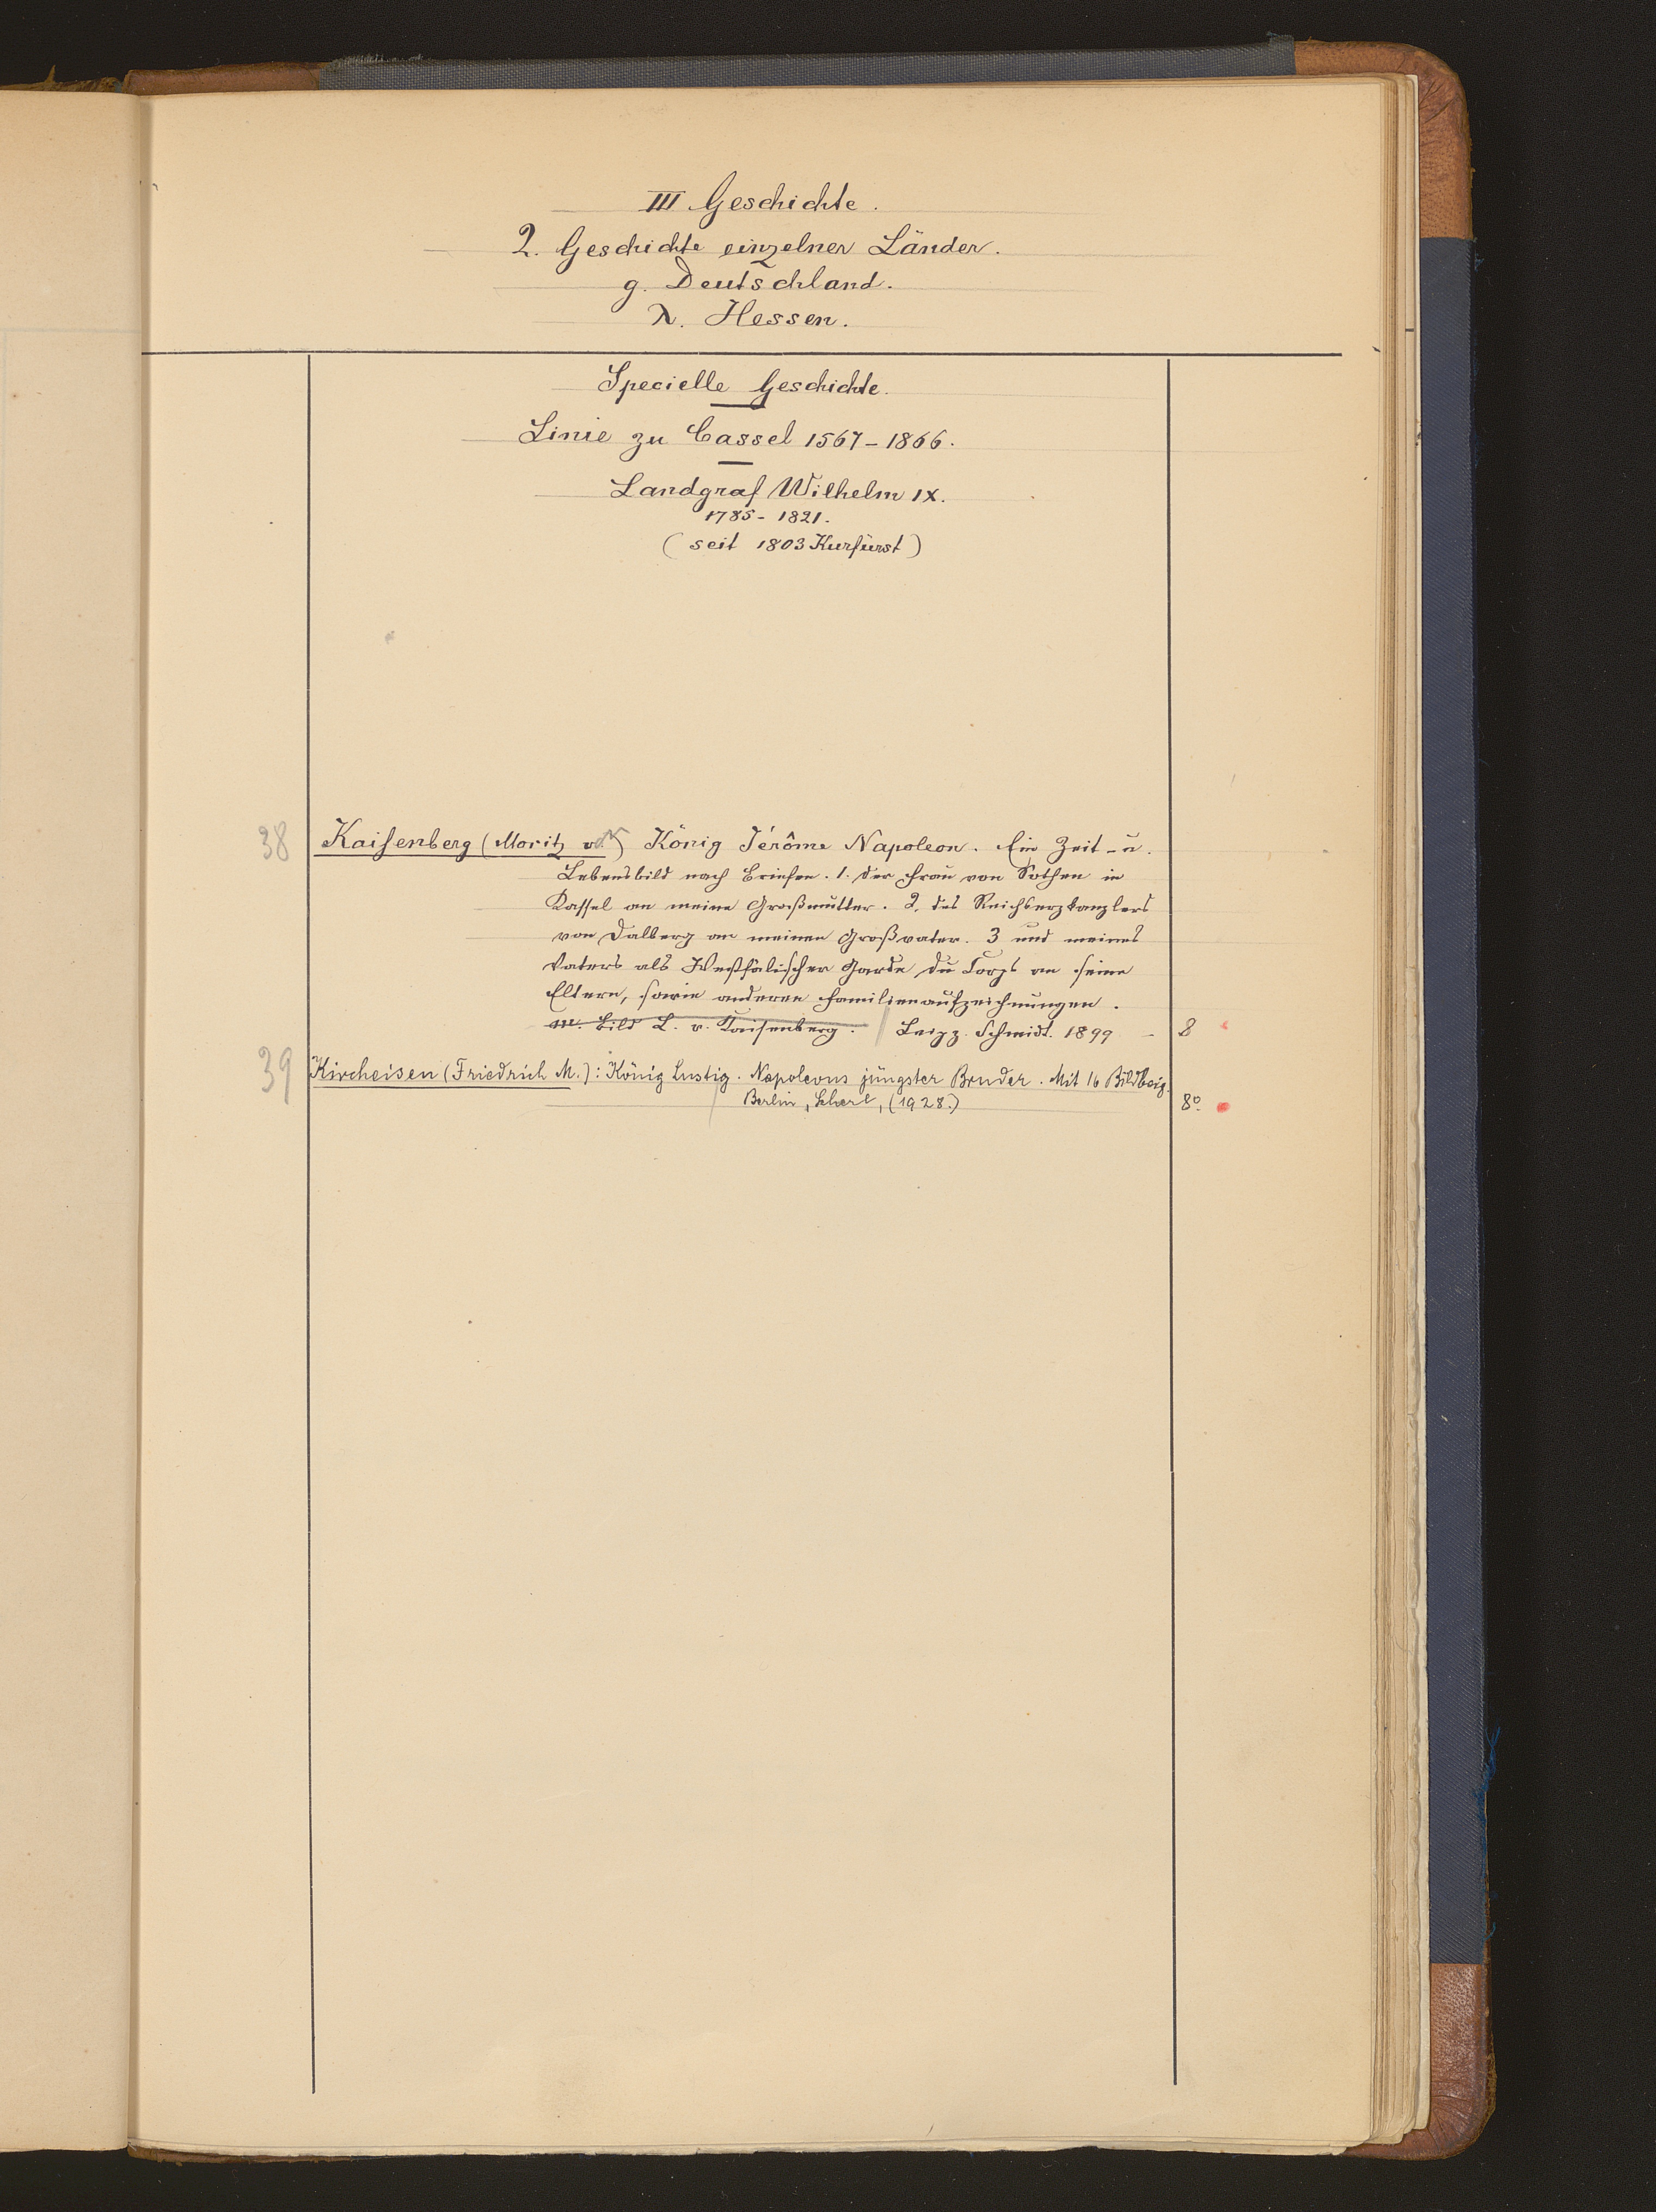 III Geschichte.
2. Geschichte einzelner Länder.
g. Deutschland.
λ. Hessen.
Specielle Geschichte.
Linie zu Cassel 1567-1866.
Landgraf Wilhelm IX.
1785-1821.
(seit 1803 Kurfürst)
38 Kaisenberg (Moritz v.) König Jérôme Napoleon. Ein Zeit- u.
Lebensbild nach Briefen. 1. der Frau von Sothen in
Kassel an meine Großmutter. 2. des Reichserzkanzlers
von Dalberg an meinen Großvater. 3 und meines
Vaters als Westfälischer Garde du Corps an seine
Eltern, sowie anderen Familienaufzeichnungen.
m. Bild L. v. Kaisenberg. Leipz. Schmidt. 1899 - 8
39 Kircheisen (Friedrich M.): König Lustig. Napoleons jüngster Bruder. Mit 16 Bildbeig.
Berlin, Scherl, (1928.) 8°.